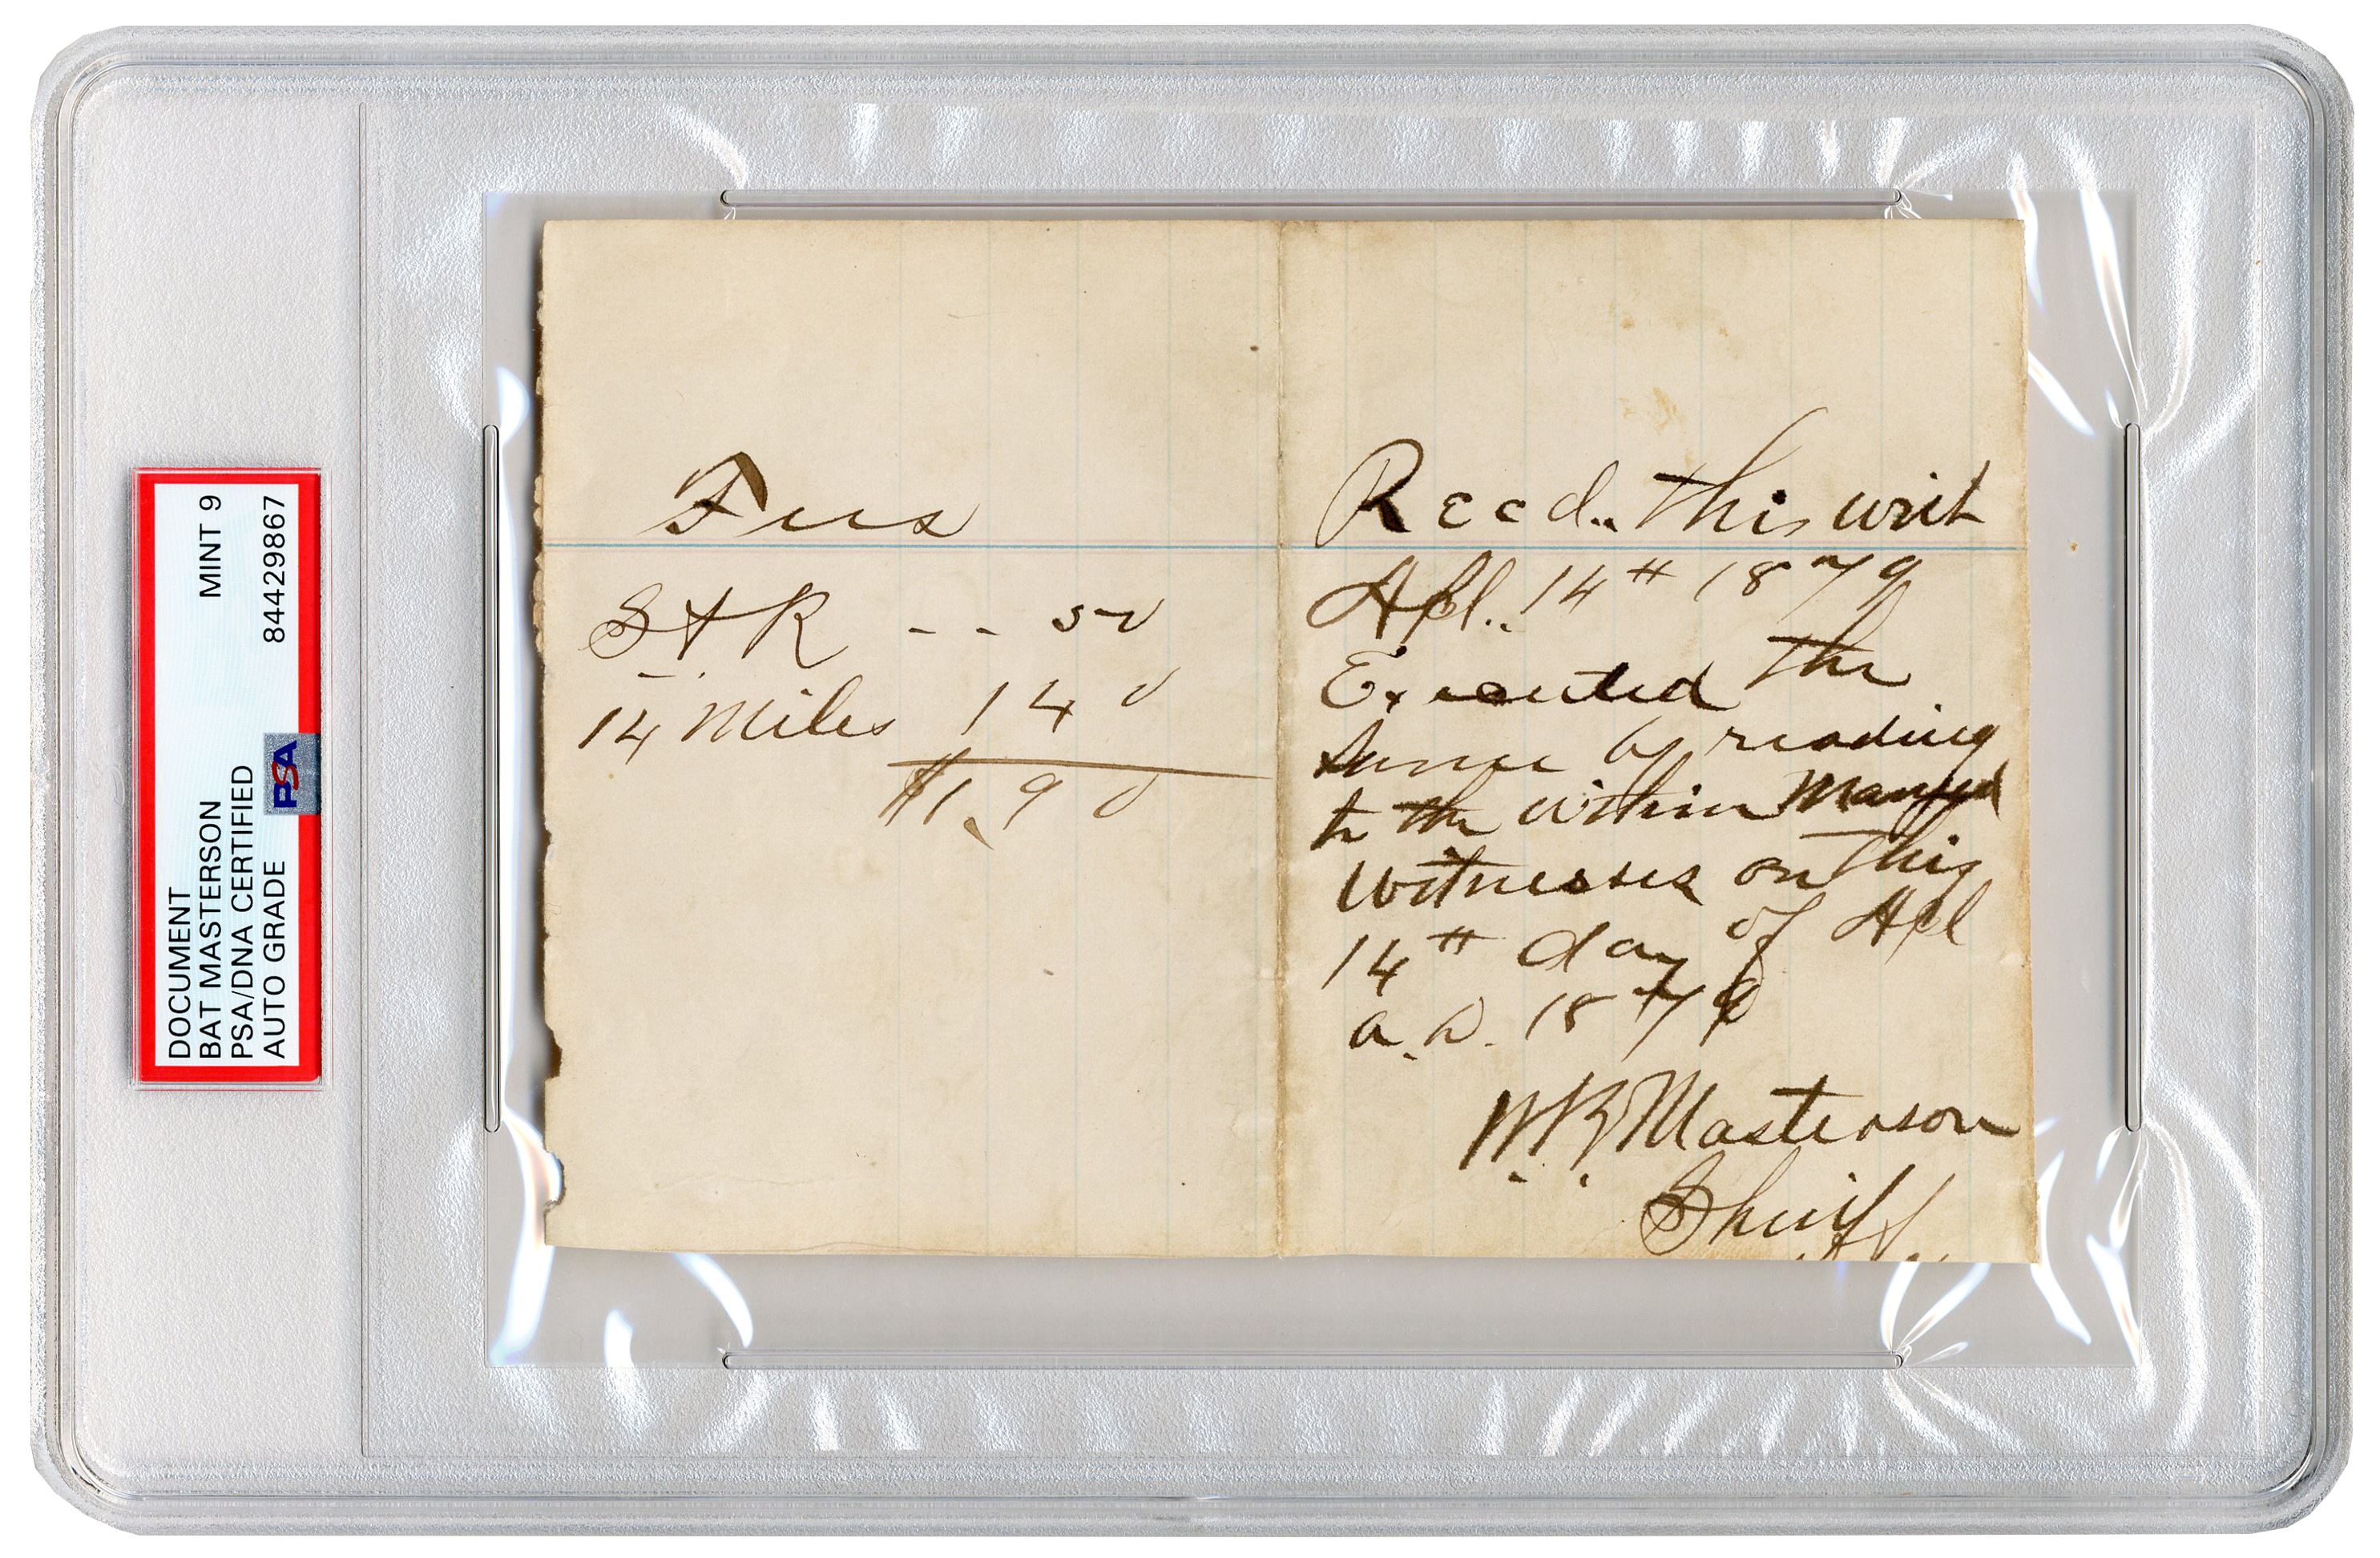 DOCUMENT
BAT MASTERSON
PSA/DNA CERTIFIED
AUTO GRADE
MINT 9
84429867
PSA
Fees
S & R -- 50
14 Miles 1 40
$1.90
Recd. this writ
Apl. 14th 1879
Executed the
same by reading
to the within Named
Witnesses on this
14th day of Apl
A.D. 1879
W.B. Masterson
Sheriff